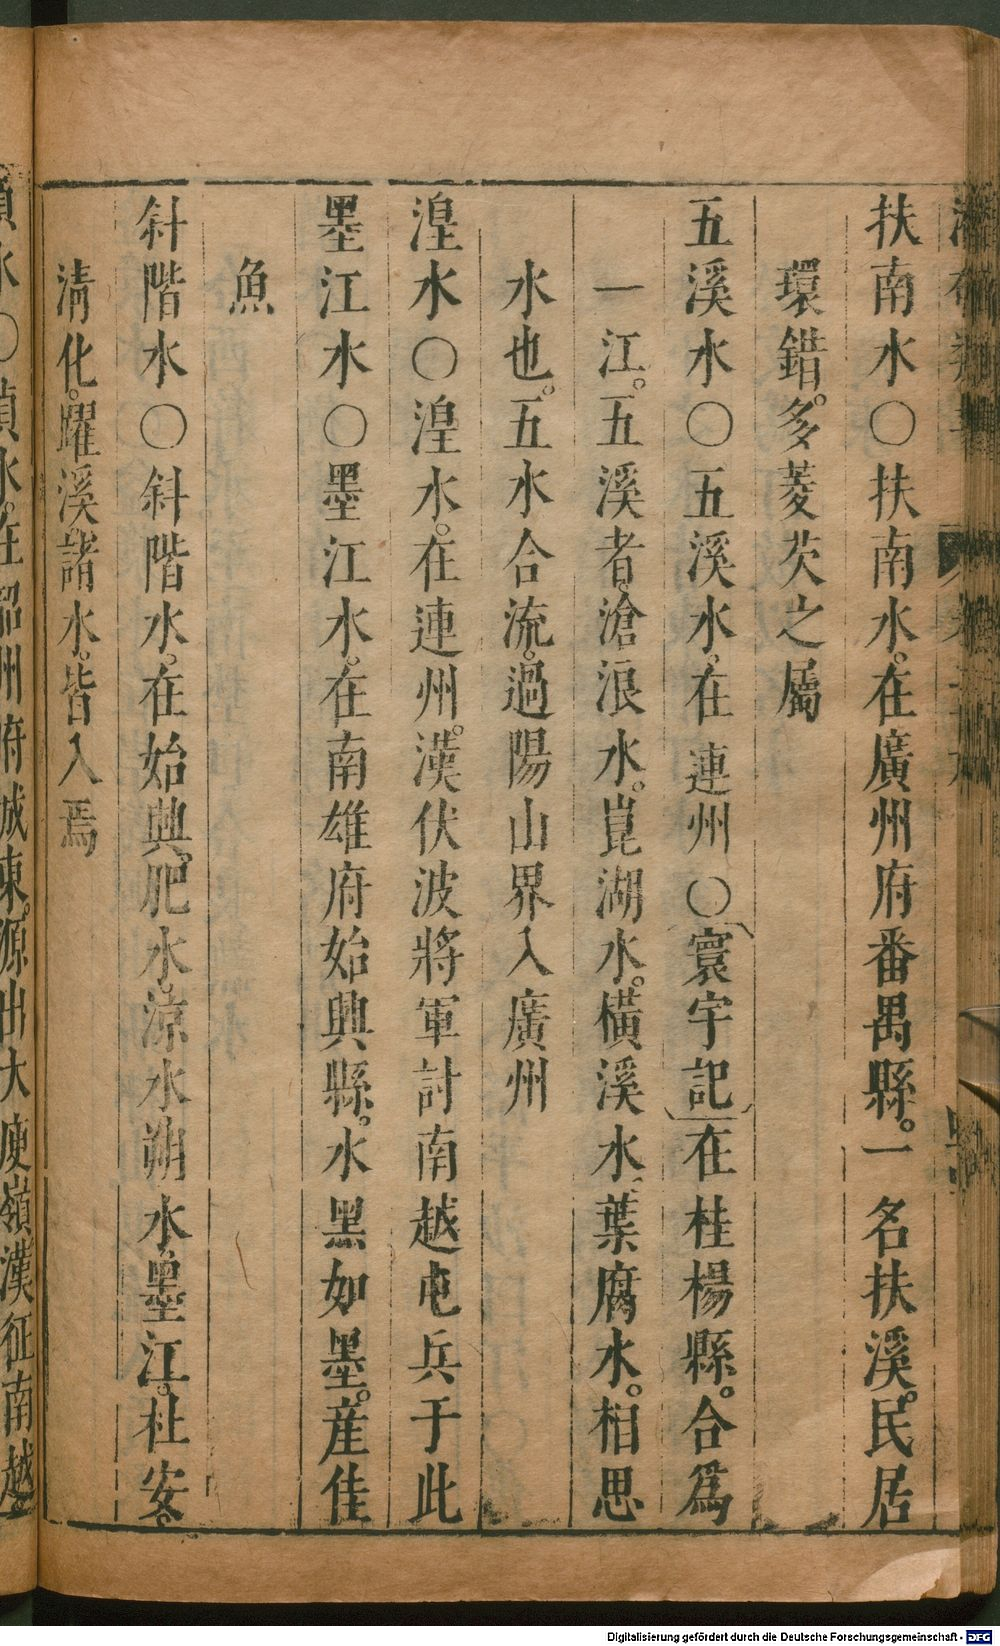 扶南水〇扶南水。在廣州府番禺縣。一名扶溪。民居
環錯。多菱芡之屬
五溪水〇五溪水。在連州〇寰宇記在桂楊縣。合爲
一江。五溪者。滄浪水。崑湖水。橫溪水。葉腐水。相思
水也。五水合流。過陽山界入廣州
湟水〇湟水。在連州。漢伏波將軍討南越屯兵于此
墨江水〇墨江水。在南雄府始興縣。水黑如墨。産佳
魚
斜階水〇斜階水。在始興。肥水。涼水。朔水。墨江。杜安。
清化。躍溪。諸水。皆入焉
水〇湞水。在韶州府城東。源出大庾嶺。漢征南越
Digitalisierung gefördert durch die Deutsche Forschungsgemeinschaft - DFG